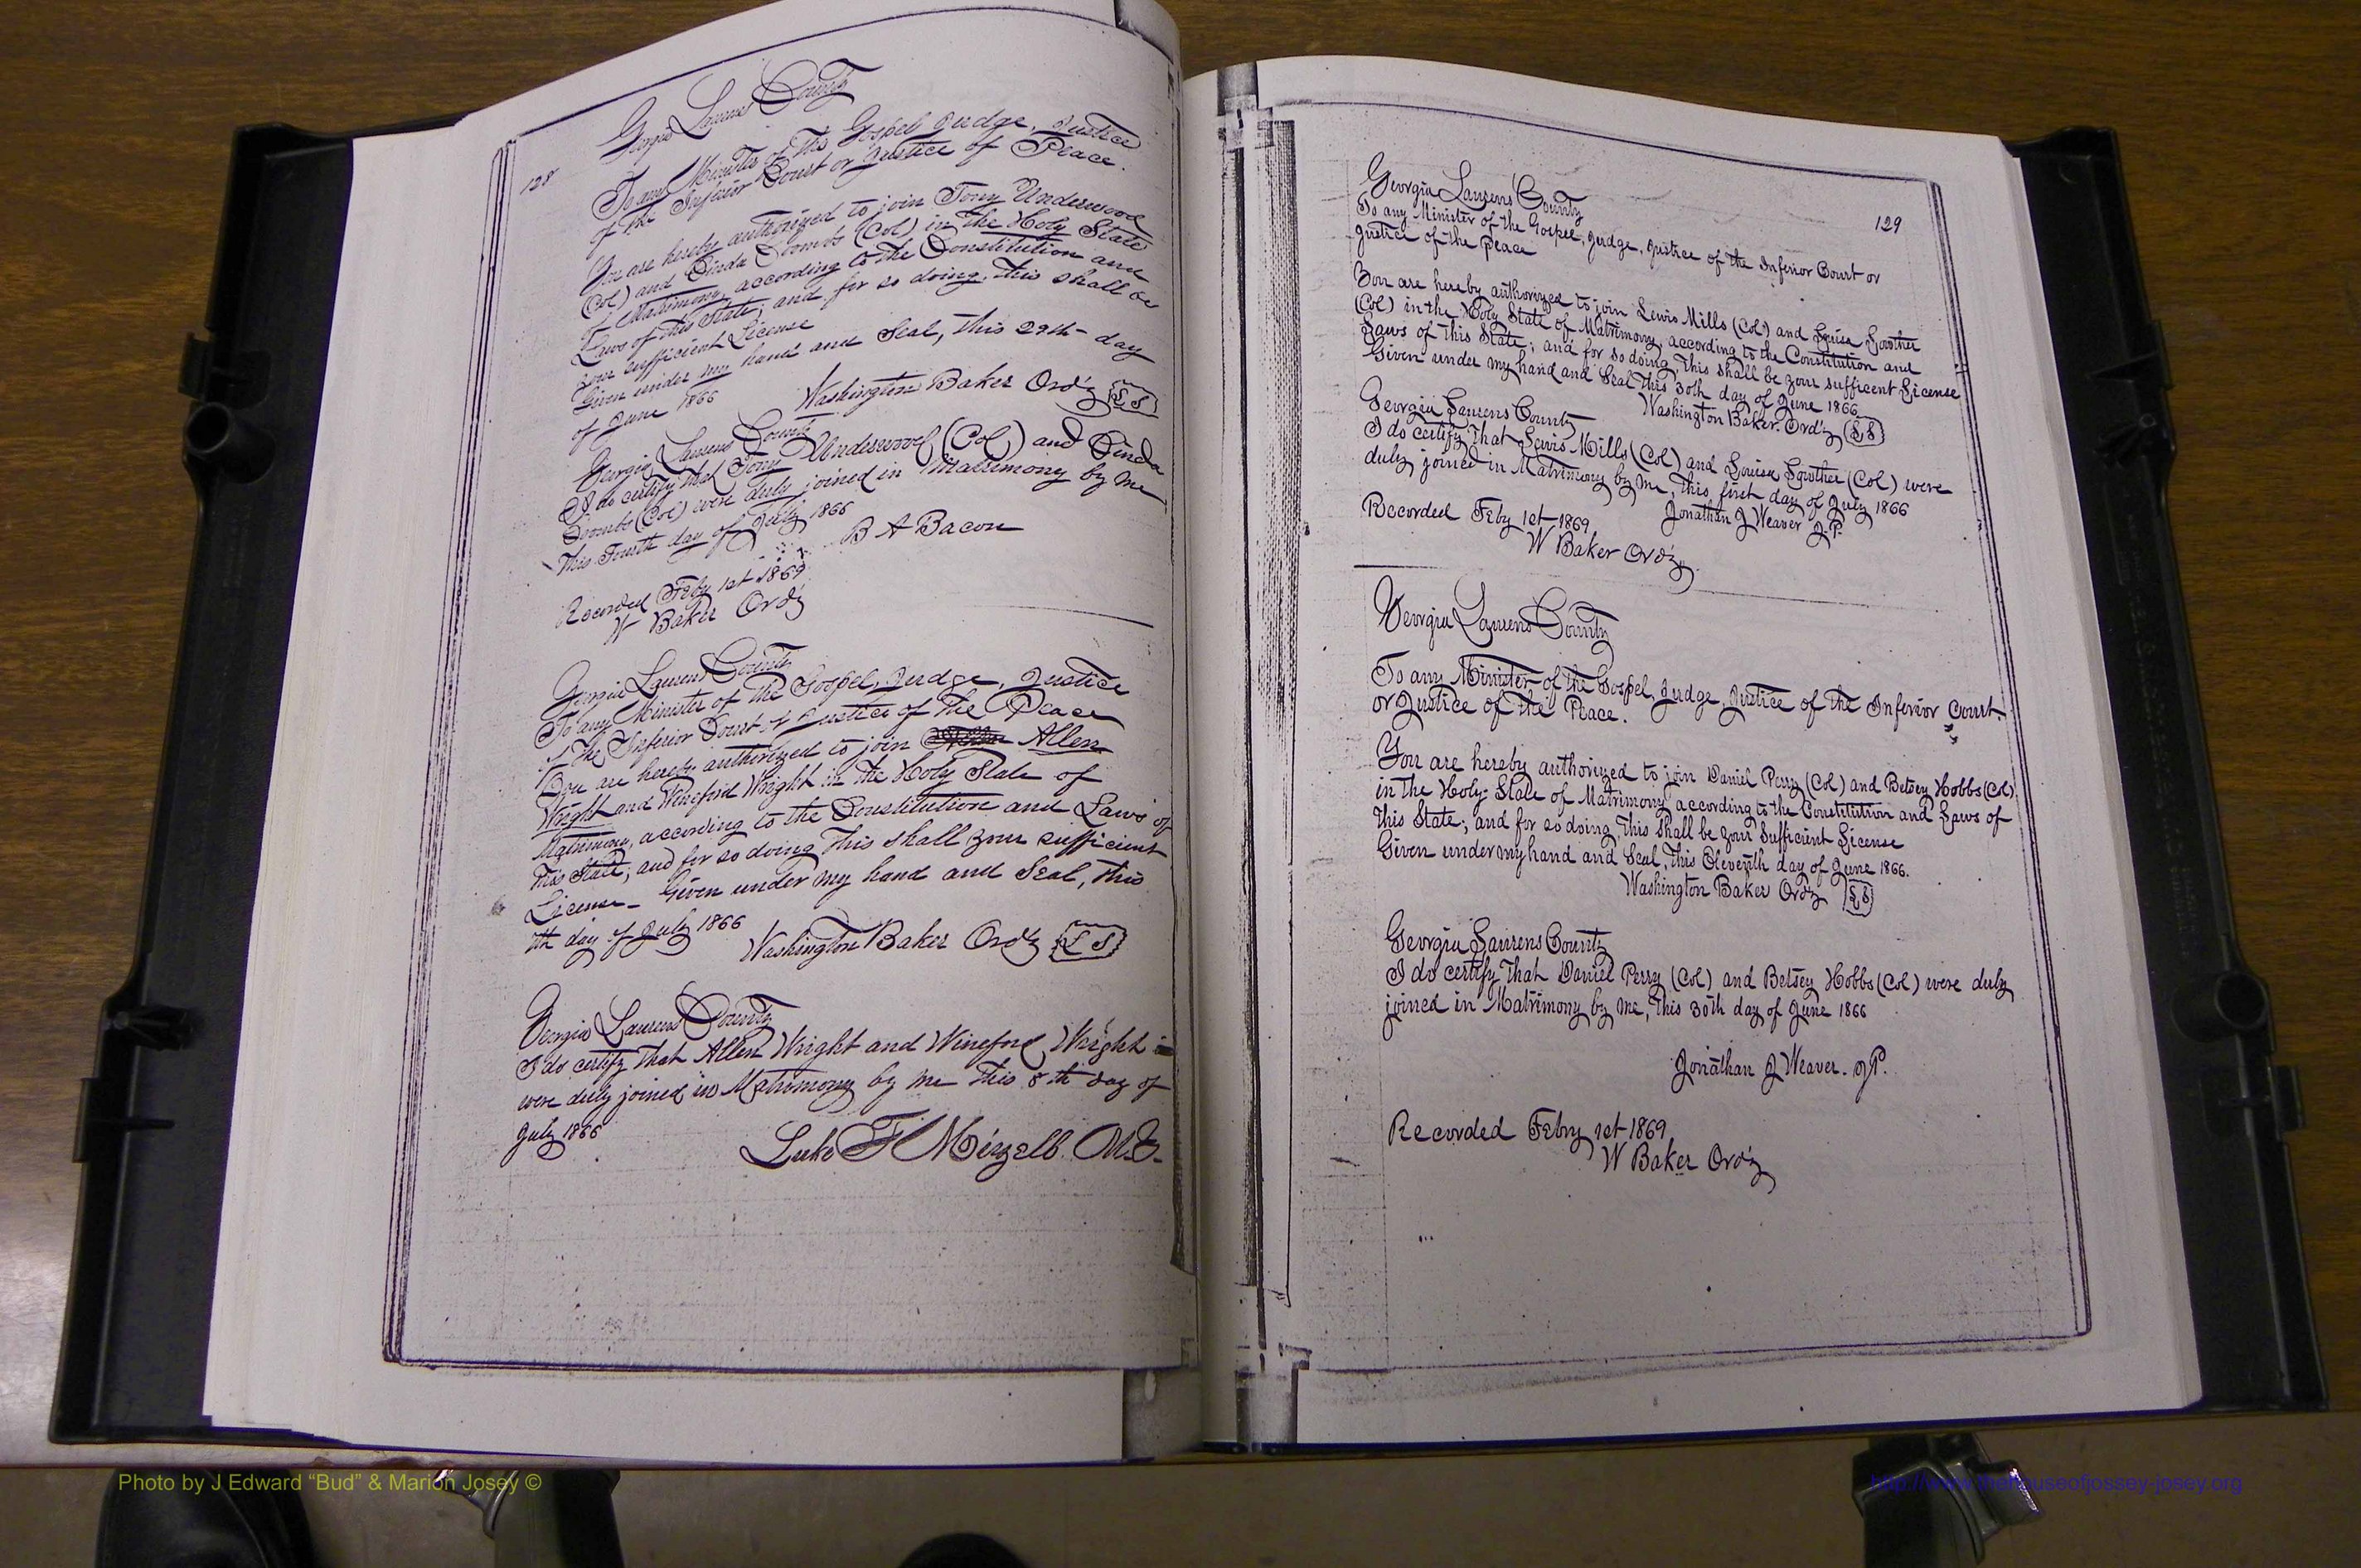 128
Georgia Laurens County
To any Minister of the Gospel Judge, Justice
of the Inferior Court or Justice of Peace.
You are hereby authorized to join Tony Underwood
(Col) and Cinda Coombs (Col) in the Holy State
of Matrimony, according to the Constitution and
Laws of this State; and for so doing, this shall be
your sufficient License
Given under my hand and Seal, this 29th day
of June 1866
Washington Baker Ord'y (L S)
Georgia Laurens County
I do certify that Tony Underwood (Col) and Cinda
Coombs (Col) were duly joined in Matrimony by me
This Fourth day of July 1866
B A Bacon
Recorded Feby 1st 1869
W Baker Ord'y
Georgia Laurens County
To any Minister of the Gospel, Judge, Justice
of the Inferior Court of Justice of the Peace
You are hereby authorized to join Allen
Wright and Wineford Wright in the Holy State of
Matrimony, according to the Constitution and Laws of
this State; and for so doing this shall your sufficient
License - Given under my hand and Seal, this
th day of July 1866
Washington Baker Ord'y (L S)
Georgia Laurens County
I do certify that Allen Wright and Wineford Wright
were duly joined in Matrimony by me this 8th day of
July 1866
Luke F Mizell M.G.
129
Georgia Laurens County
To any Minister of the Gospel, Judge, Justice of the Inferior Court or
Justice of the Peace
You are hereby authorized to join Lewis Mills (Col) and Louisa Lowther
(Col) in the Holy State of Matrimony, according to the Constitution and
Laws of this State; and for so doing, this shall be your sufficent License
Given under my hand and Seal this 30th day of June 1866
Washington Baker. Ord'y (L S)
Georgia Laurens County
I do certify That Lewis Mills (Col) and Louisa Lowther (Col) were
duly joined in Matrimony by me, this first day of July 1866
Jonathan J Weaver J.P.
Recorded Feby 1st 1869
W Baker Ord'y
Georgia Laurens County
To any Minister of the Gospel, Judge, Justice of the Inferior Court.
or Justice of the Peace.
You are hereby authorized to join Daniel Perry (Col) and Betsey Hobbs (Col)
in the Holy State of Matrimony according to the Constitution and Laws of
this State; and for so doing, this shall be your Sufficient License
Given under my hand and Seal, this Eleventh day of June 1866.
Washington Baker Ord'y (L S)
Georgia Laurens County
I do certify That Daniel Perry (Col) and Betsey Hobbs (Col) were duly
joined in Matrimony by me, this 30th day of June 1866
Jonathan J Weaver. J.P.
Recorded Febry 1st 1869
W Baker Ord'y
Photo by J Edward “Bud” & Marion Josey ©
http://www.thehouseofjossey-josey.org